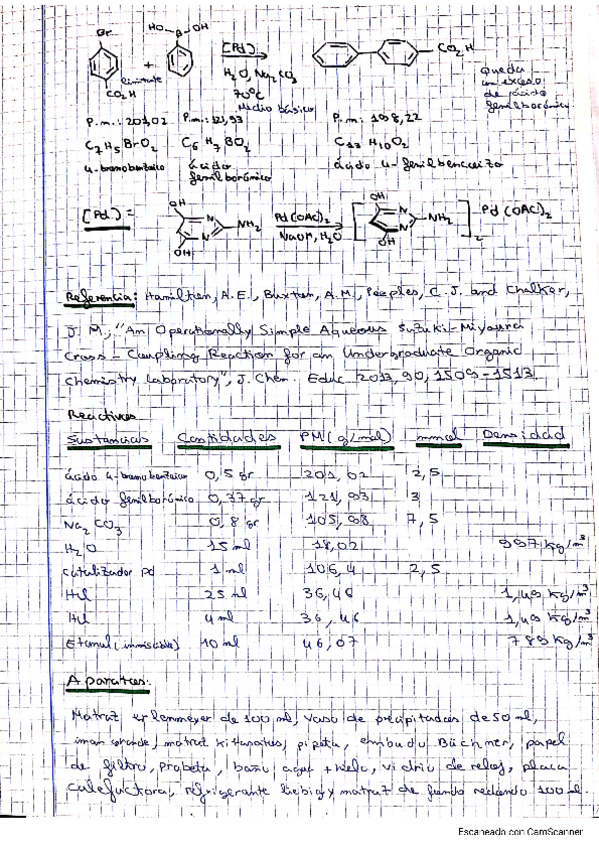 Br HO-B-OH
+ [Pd] CO₂H
limitante H₂O, Na₂CO₃ Queda
CO₂H 70ºC un exceso
Medio básico de ácido
fenilborónico
P.m.: 201,02 P.m.: 121,93 P.m.: 198,22
C₇H₅BrO₂ C₆H₇BO₂ C₁₃H₁₀O₂
4-bromobenzoico ácido ácido 4-fenilbenzoico
fenilborónico
[Pd] = OH N NH₂ N OH Pd(OAc)₂ NaOH, H₂O OH N NH₂ N OH 2 Pd(OAc)₂
Referencia: Hamilton, A.E., Buxton, A.M., Peeples, C.J. and Chalker,
J. M., "An Operationally Simple Aqueous Suzuki-Miyaura
Cross-Coupling Reaction for an Undergraduate Organic
Chemistry Laboratory", J. Chem. Educ. 2013, 90, 1509-1513
Reactivos
Sustancias Cantidades PM(g/mol) mmol Densidad
ácido 4-bromobenzoico 0,5 gr 201,02 2,5
ácido fenilborónico 0,37 gr 121,93 3
Na₂CO₃ 0,8 gr 105,98 7,5
H₂O 15 ml 18,02 997 kg/m³
Catalizador Pd 1 ml 106,4 2,5
HCl 25 ml 36,46 1,49 kg/m³
HCl 4 ml 36,46 1,49 kg/m³
Etanol (inmiscible) 10 ml 46,07 789 kg/m³
Aparatos:
Matraz erlenmeyer de 100 ml, vaso de precipitados de 50 ml,
iman grande, matraz kitasatos, pipeta, embudo Büchner, papel
de filtro, probeta, baño agua + hielo, vidrio de reloj, placa
calefactora, refrigerante liebig y matraz de fondo redondo 100 ml.
Escaneado con CamScanner